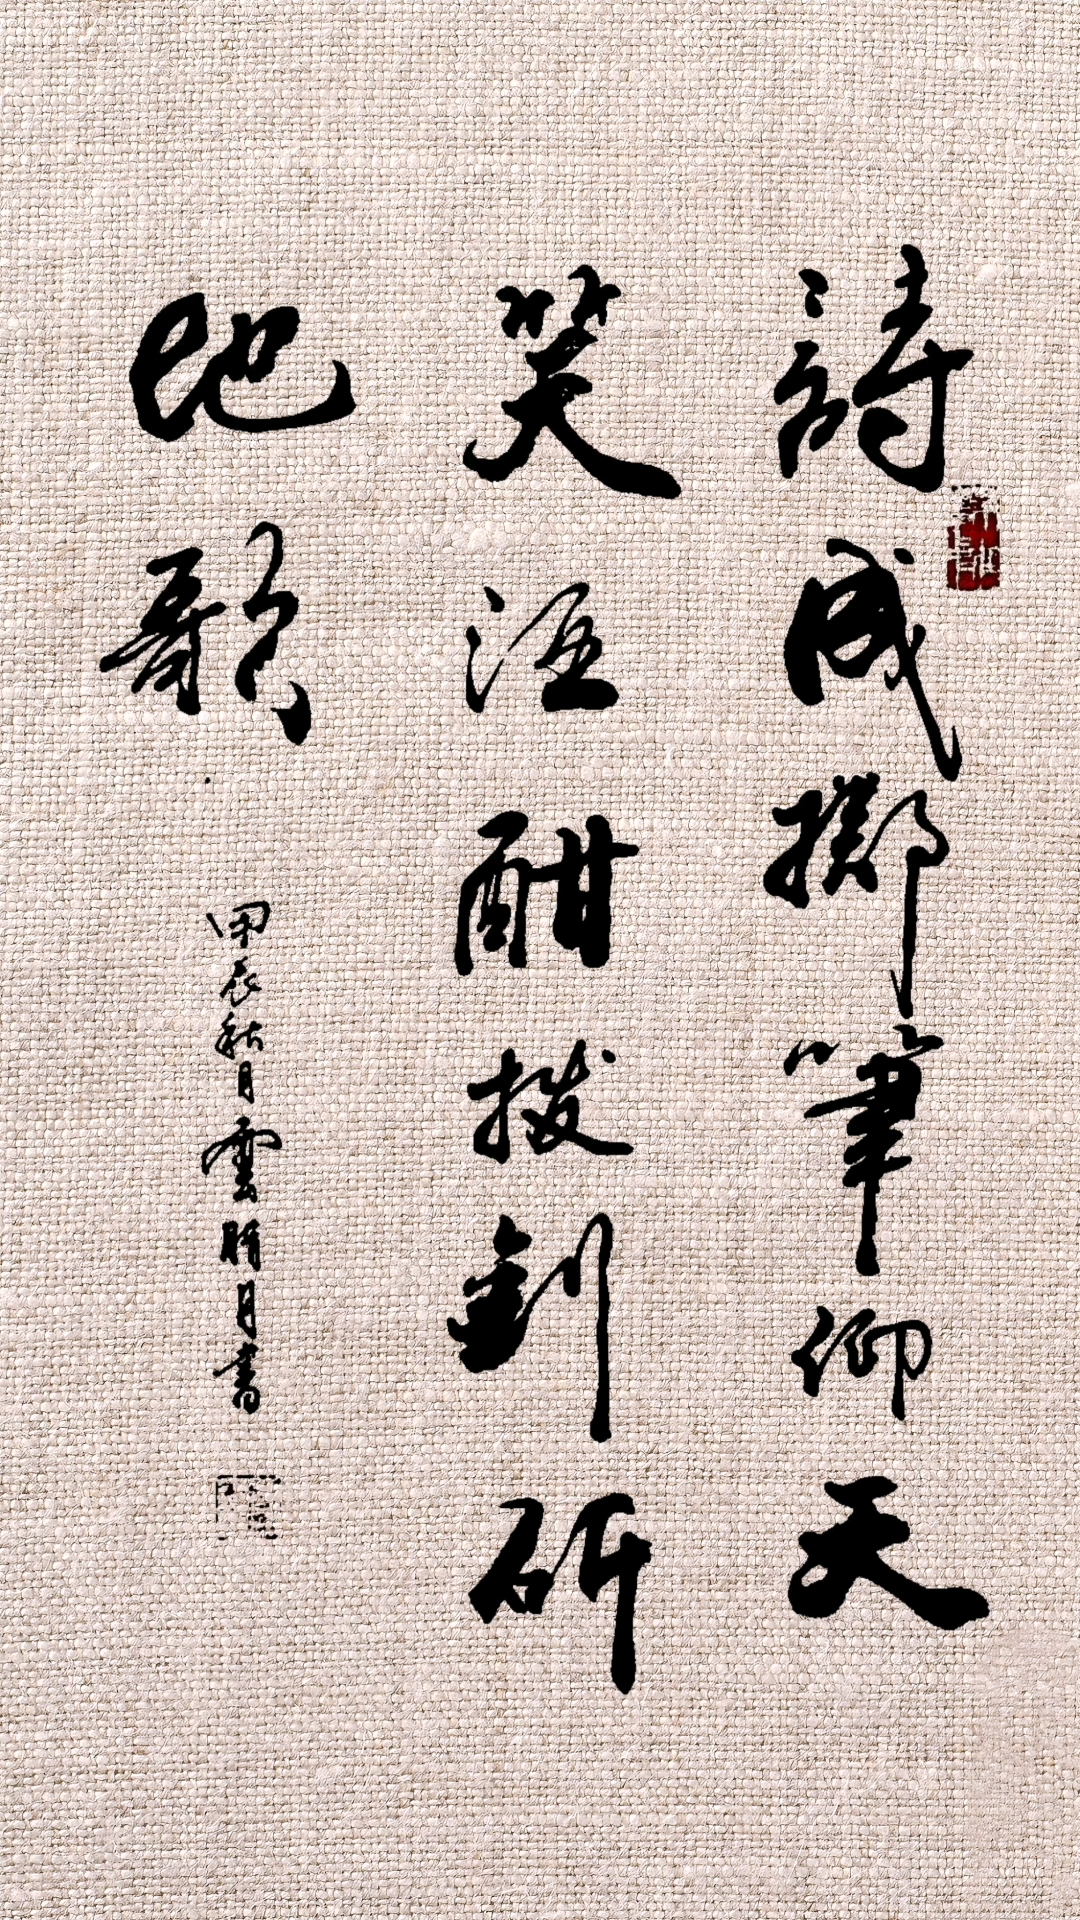 詩成擲筆仰天
笑酒酣拔劍斫
地歌
甲辰秋月雲晴月書